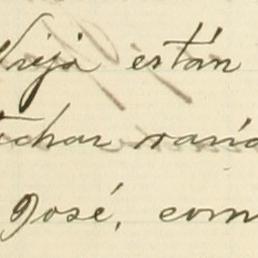 Vieja están
echar varia
José, com